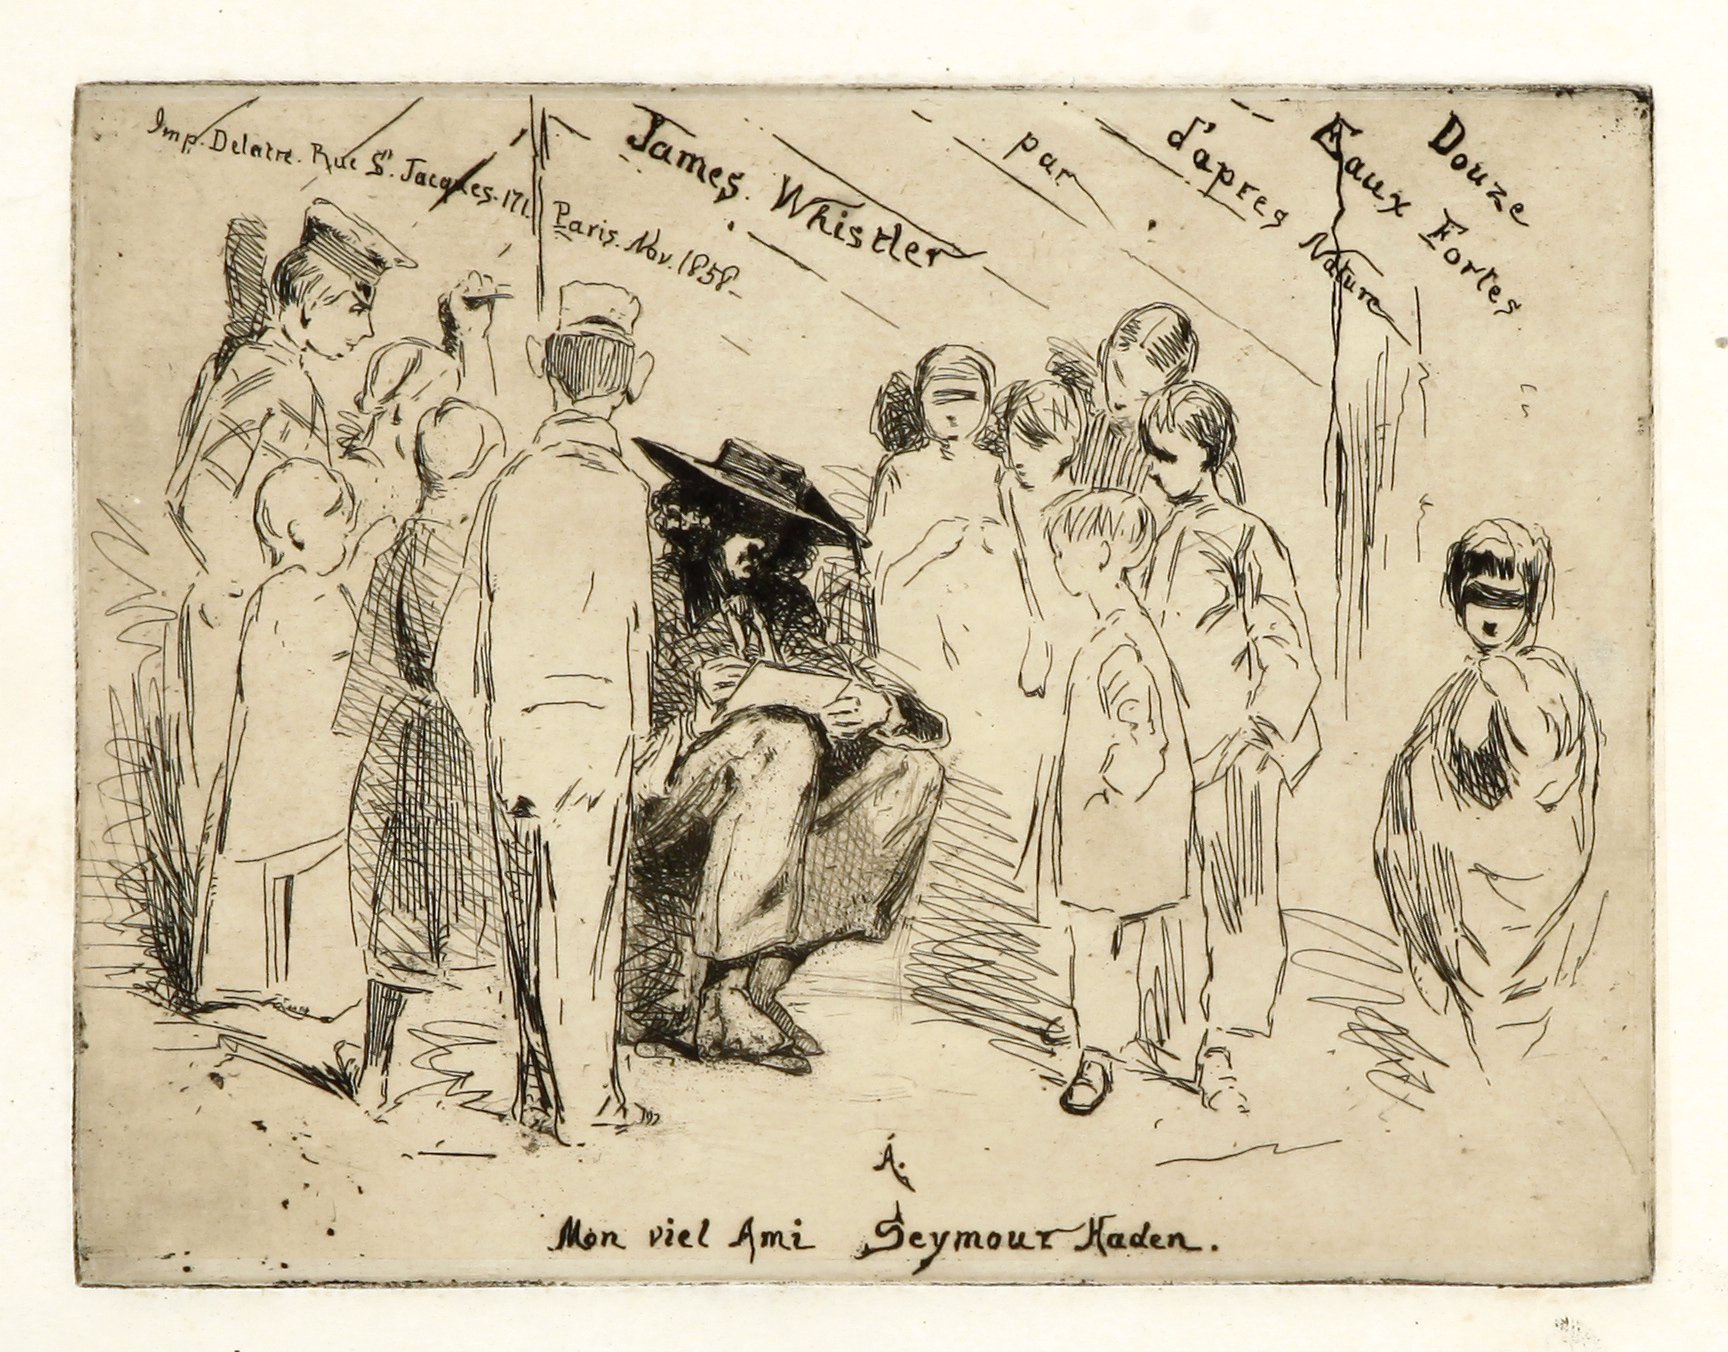 Douze
Eaux Fortes
d'apres Nature
par
James. Whistler
Imp. Delatre. Rue St. Jacques. 171.
Paris. Nov. 1858-
Á.
Mon viel Ami Seymour Haden.